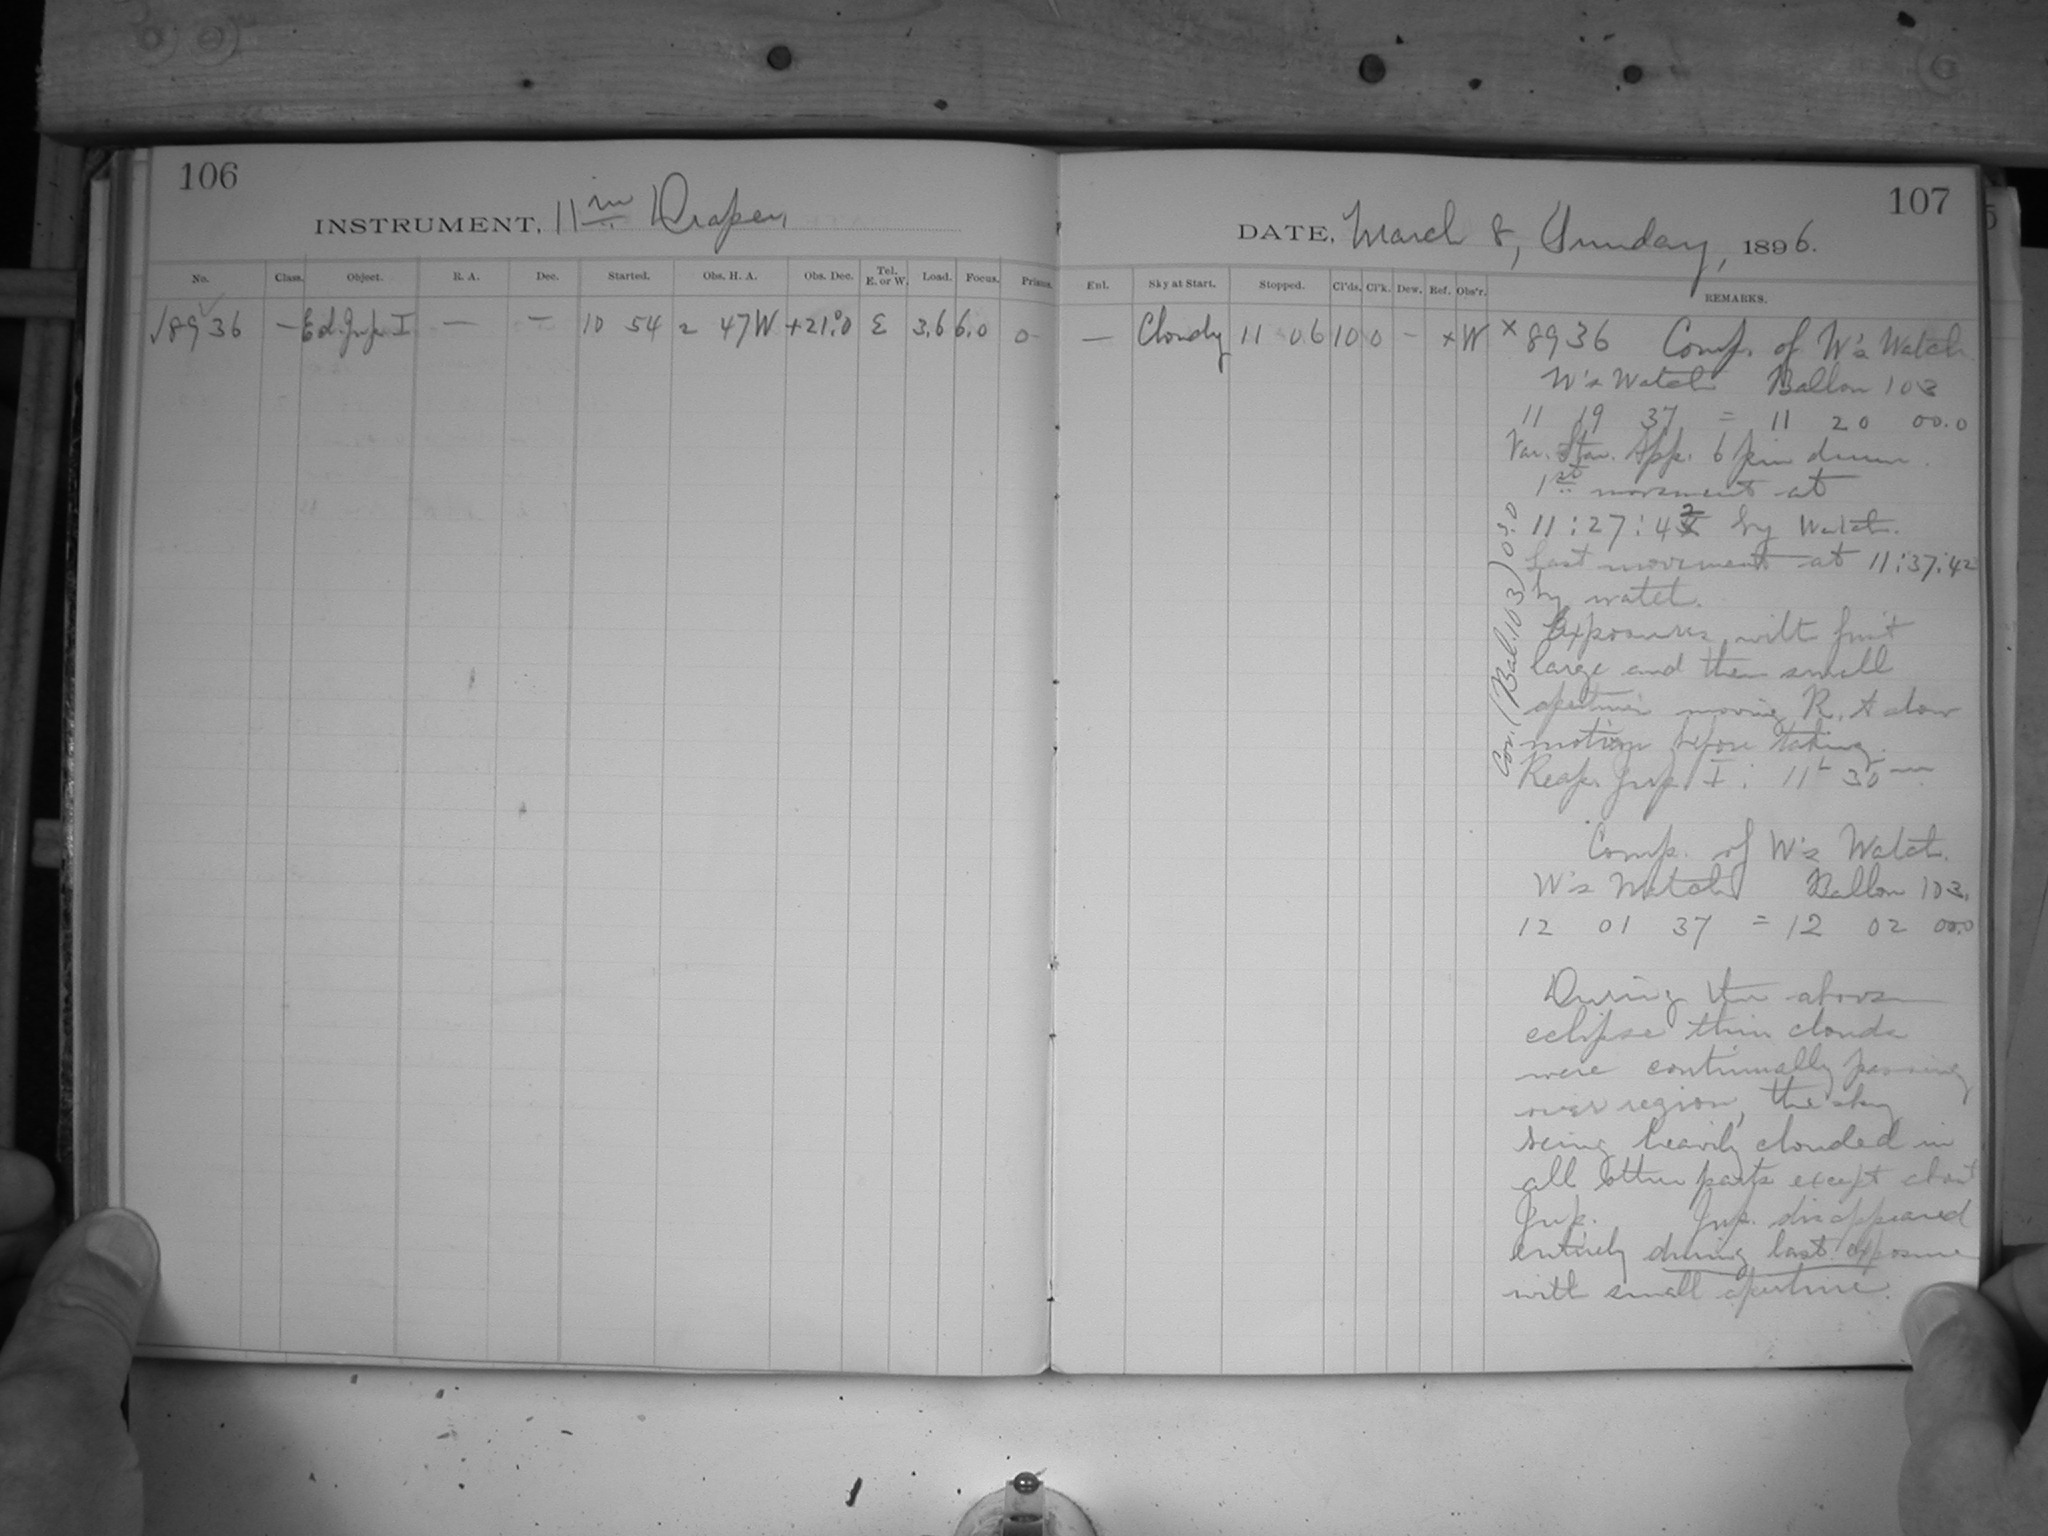 106
INSTRUMENT, 11 in Draper,
No. Class. Object. R. A. Dec. Started. Obs. H. A. Obs. Dec. Tel. E. or W. Load. Focus. Prisms.
√8936 — Ed. Jup. I — — 10 54 2 47W +21.°0 E 3.6 6.0 0
107
DATE, March 8, Sunday, 1896.
Enl. Sky at Start. Stopped. Cl'ds. Cl'k. Dew. Ref. Obs'r. REMARKS.
— Cloudy 11 06 10 0 - × W × 8936 Comp. of W's Watch
W's Watch Ballou 103
11 19 37 = 11 20 00.0
Var. Star. App. 6 pin
1st movement at
11:27:42 by Watch.
Last movement at 11:37:42
by watch.
Exposures with first
large and then small
aperture moving R. A slow
motion before taking.
Reap. Jup. I: 11h 30m
Cor. (Bal. 103) 0s.0
Comp. of W's Watch.
W's Watch Ballou 103.
12 01 37 = 12 02 00.0
During the above
eclipse thin clouds
were continually passing
over region, the sky
being heavily clouded in
all other parts except about
Jup. Jup. disappeared
entirely during last exposure
with small aperture.